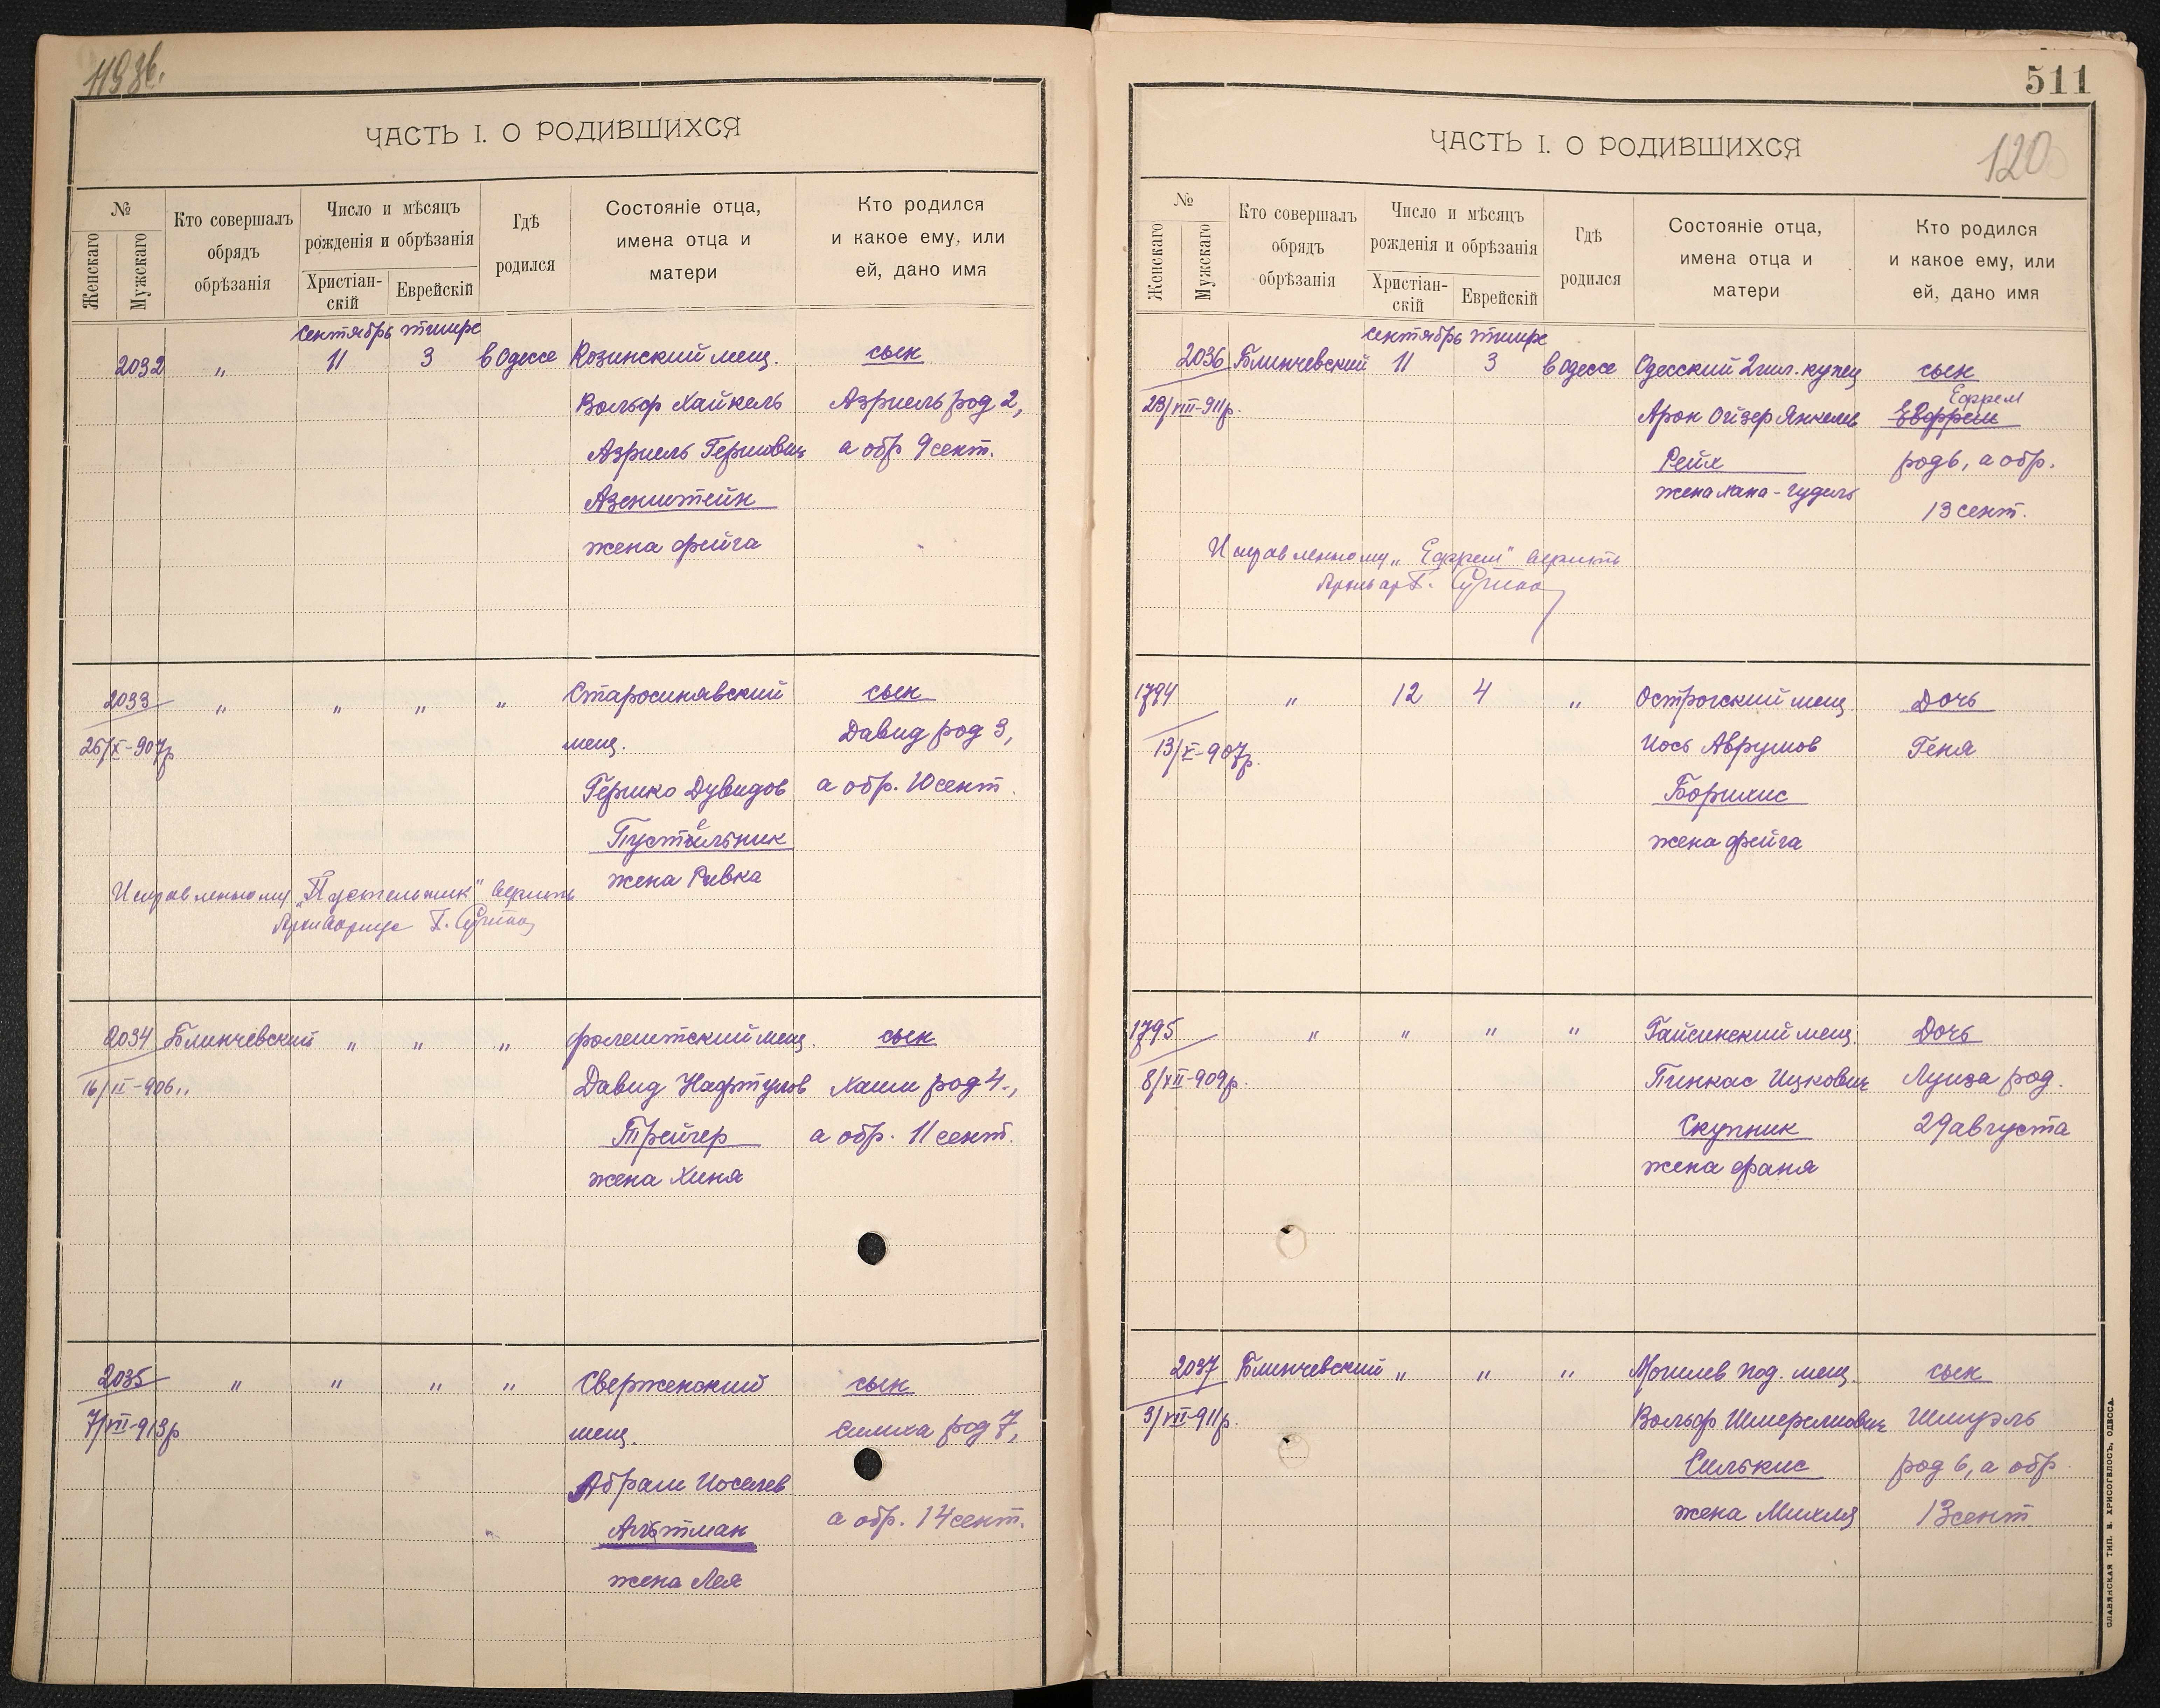 119 об.
ЧАСТЬ I. О РОДИВШИХСЯ
№
Женскаго
Мужскаго
Кто совершалъ
обрядъ
обрѣзанія
Число и мѣсяцъ
рожденія и обрѣзанія
Христіан-
скій
Еврейскій
Гдѣ
родился
Состояніе отца,
имена отца и
матери
Кто родился
и какое ему, или
ей, дано имя
сентябрь тишре
2032 „ 11 3 в Одессе Козинский мещ. сын
Вольф Хайкель Азриель род 2,
Азриель Гершович а обр 9 сент.
Азенштейн
жена фейга
2033 „ „ „ „ Старосинявский сын
26/X-907р мещ. Давид род 3,
Гершко Дувидов а обр. 10 сент.
Пустельник
жена Ривка
Исправленному „Пустельник" верить
Архивариус
2034 Блинчевский „ „ „ фалештский мещ. сын
16/II-906,, Давид Нафтулов Хаим род 4.,
Трейгер а обр. 11 сент.
жена Хиня
2035 „ „ „ „ Сверженский сын
7/VII-913р мещ. Симха род 7,
Абрам Иоселев
Альтман а обр. 14 сент.
жена Лея
511
120
ЧАСТЬ I. О РОДИВШИХСЯ
№
Женскаго
Мужскаго
Кто совершалъ
обрядъ
обрѣзанія
Число и мѣсяцъ
рожденія и обрѣзанія
Христіан-
скій
Еврейскій
Гдѣ
родился
Состояніе отца,
имена отца и
матери
Кто родился
и какое ему, или
ей, дано имя
сентябрь тишре
2036 Блинчевский 11 3 в Одессе Одесский 2 гил. купец сын
Ефрем
28/VIII-911р. Арон Ойзер Янкелев Евфрем
Рейх род 6, а обр.
жена Хана-Гудель 13 сент.
Исправленному „Ефрем" верить
1794 „ 12 4 „ Острогский мещ. Дочь
13/X-907р. Иось Аврумов Геня
Борихис
жена фейга
1795 „ „ „ „ Гайсинский мещ. Дочь
8/XII-909р. Пинкас Ицкович Луиза род.
Скупник 29 августа
жена фаня
2037 Блинчевский „ „ „ Могилев под. мещ. сын
3/VII-911р. Вольф Шмерлиович Шмуэль
Силькис род 6, а обр.
жена Михля 13 сент
СЛАВЯНСКАЯ ТИП. Е. ХРИСОГЕЛОСЪ, ОДЕССА.